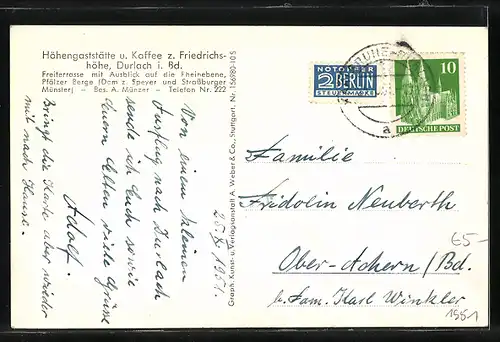 Höhengaststätte u. Kaffee z. Friedrichs-
höhe, Durlach i. Bd.
Freiterrasse mit Ausblick auf die Rheinebene,
Pfälzer Berge (Dom z. Speyer und Straßburger
Münster) – Bes. A. Münzer – Telefon Nr. 222
Von einem kleinen
Ausflug nach Durlach
sende ich Euch sowie
Euern Eltern viele Grüsse
Adolf.
Bringt die Karte aber wieder
mit nach Hause.
1951.
Graph. Kunst- u. Verlagsanstalt A. Weber & Co., Stuttgart. Nr.
NOTOPFER
2 BERLIN
STEUERMARKE
10
DEUTSCHE POST
a
Familie
Fridolin Neuberth
Ober-Achern/Bd.
b. Fam. Karl Winkler
65-
1951